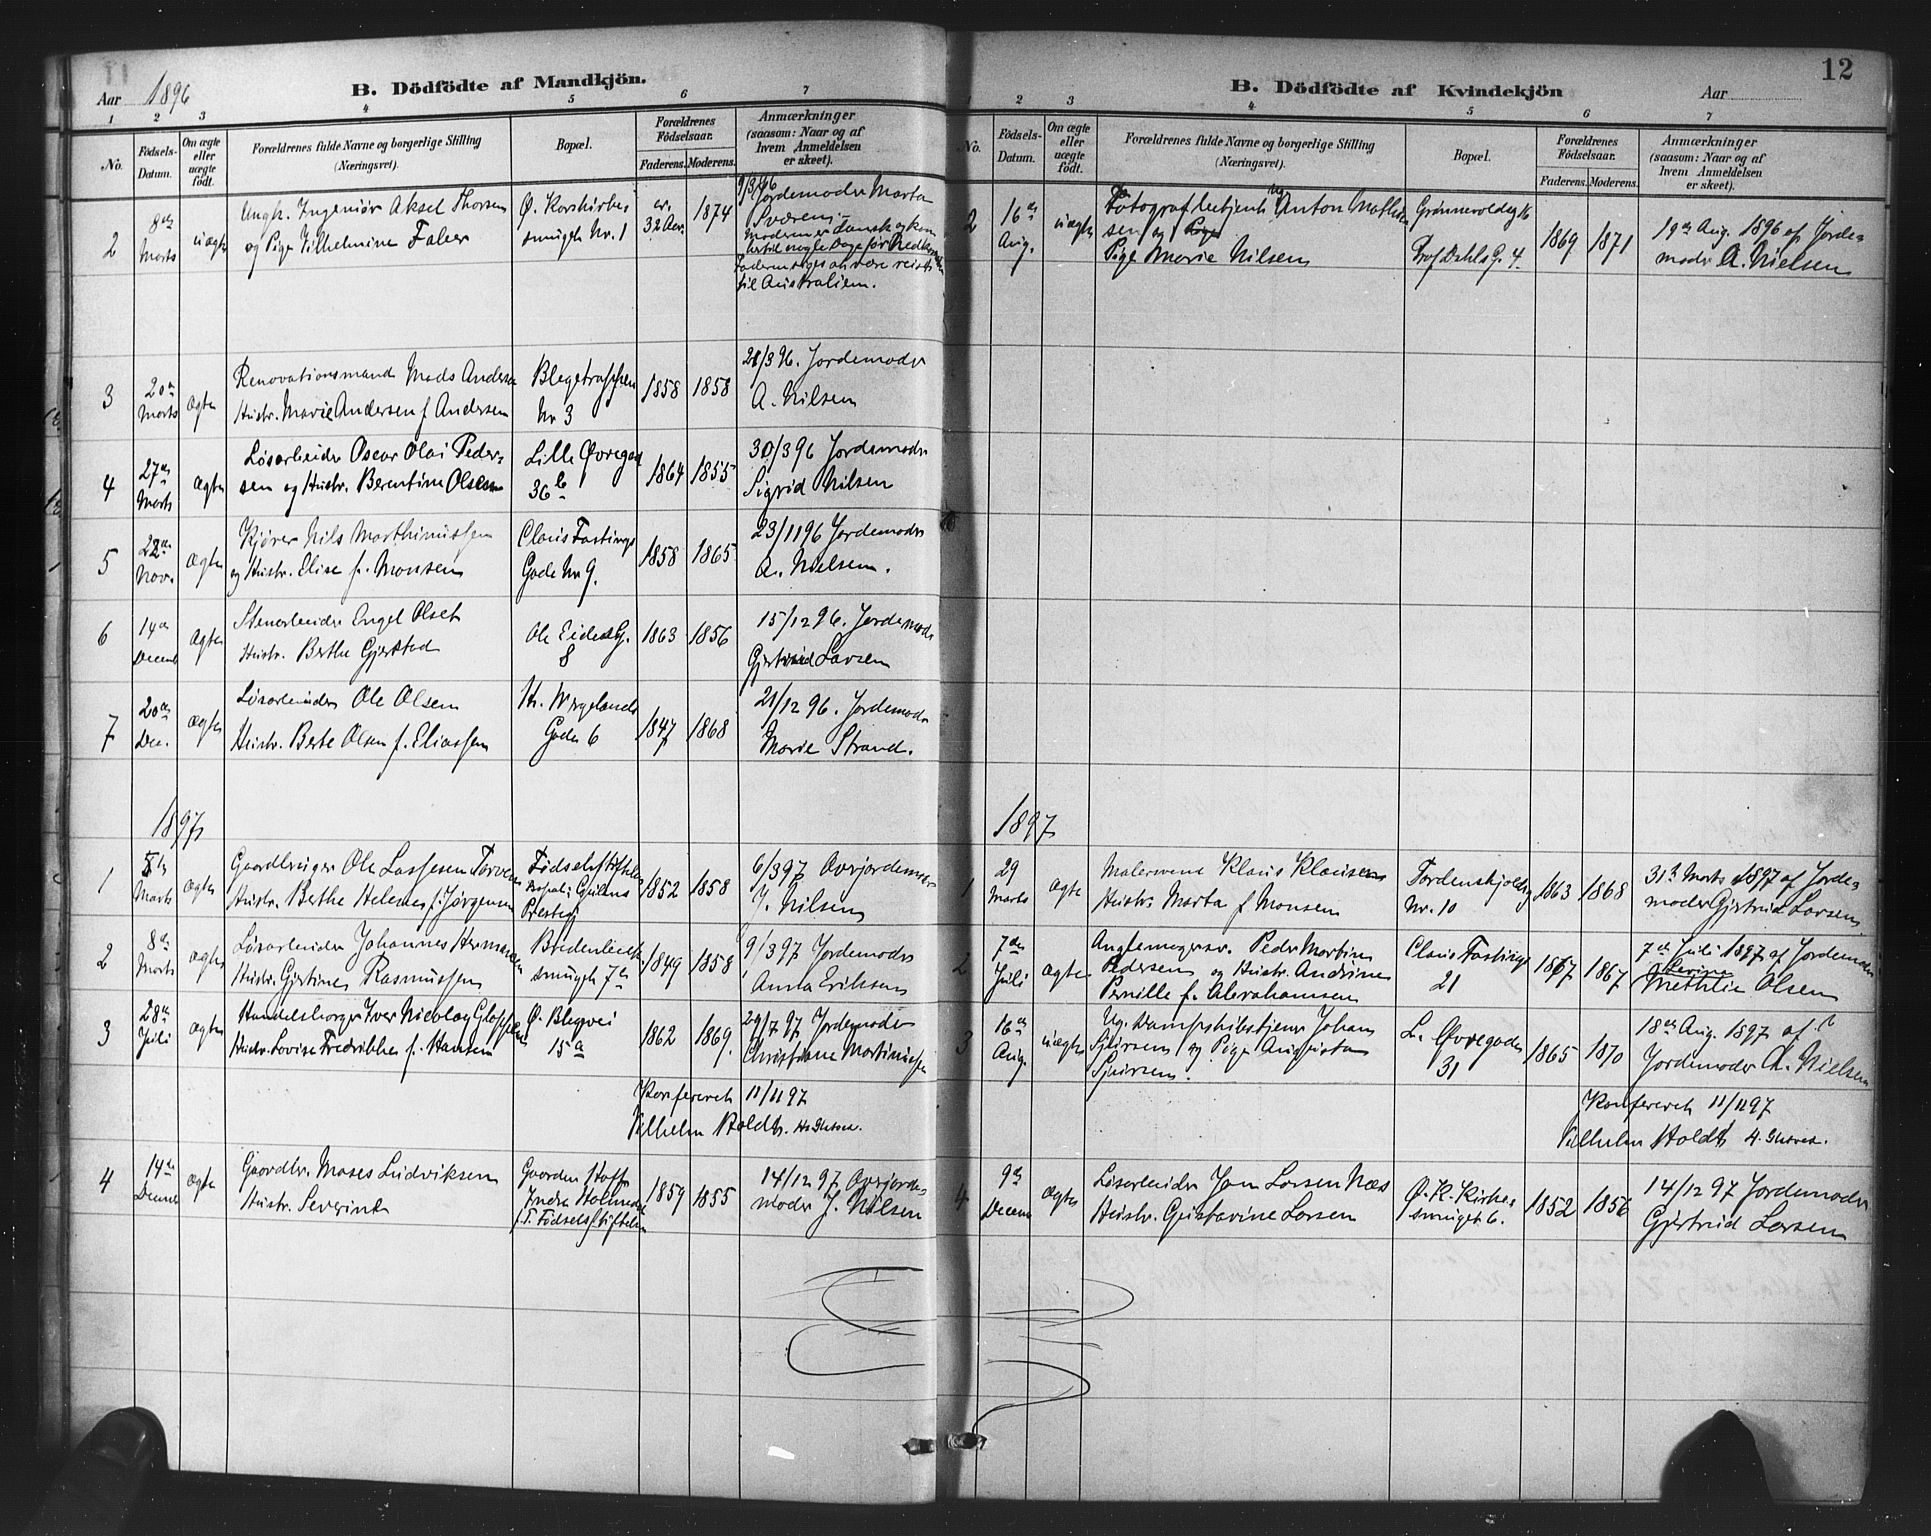 Aar 1896
B. Dödfödte af Mandkjön.
1 2 3 4 5 6 7
No.
Födsels-
Datum.
Om ægte
eller
uægte
födt.
Forældrenes fulde Navne og borgerlige Stilling
(Næringsvei).
Bopæl.
Forældrenes
Födselsaar.
Faderens. Moderens.
Anmærkninger
(saasom: Naar og af
hvem Anmeldelsen
er skeet).
2
8de
Marts
uægte
Ungk. Ingeniør Aksel Thorsen
og Pige Vilhelmine Faber
Ø. Korskirke
smuget Nr. 1
32 Aar.
1874
9/3 96
Jordemoder Marta
Moderen er dansk og kom
Faderen siges at være reist
til Australien.
3
20de
Marts
ægte
Renovationsmand Mads Andersen
Hustr. Marie Andersen f Andersen
Blegetrappen
Nr 3
1858
1858
21/3 96. Jordemoder
A. Nilsen
4
27de
Marts
ægte
Løsarbeider Oscar Olai Peder-
sen og Hustr. Berentine Olsen
Lille Øvregad
36 b
1864
1855
30/3 96 Jordemoder
Sigrid Nilsen
5
22de
Nov.
ægte
Kjører Nils Marthinussen
og Hustr. Elise f. Monsen
Claus Fastings
Gade Nr 9.
1858
1865
23/11 96 Jordemoder
A. Nielsen.
6
14de
Decemb
ægte
Stenarbeider Engel Olset
Hustr. Berthe Gjerstad
Ole Eides G.
8
1863
1856
15/12 96. Jordemoder
Gjertrud Larsen
7
20de
Dec.
ægte
Løsarbeider Ole Olsen
Hustr. Berte Olsen f. Eliassen
H. Wergelands
Gade 6
1847
1868
21/12 96. Jordemoder
Marie Strand.
1897
1
Marts
ægte
Gaardbruger Ole Lassesen
Hustr. Berthe Helene f. Jørgensen
Fødselsstiftelsen
Bopæl: Gulens
Prestegj
1852
1858
6/3 97 Overjordemoder
J. Nilsen
2
8de
Marts
ægte
Løsarbeider Johannes Hermansen
Hustr. Gjertine Rasmussen
smuget 7
1849
1858
9/3 97 Jordemoder
Anna Eriksen
3
28de
Juli
ægte
Handelsborger Iver Nicolay
Hustr. Lovise Fredrikke f. Hansen
Ø. Blegevei
15 a
1862
1869.
29/7 97 Jordemoder
Christiane Martinussen
Konfereret 11/11 97
Vilhelm Boldt.
4
14de
Decemb
ægte
Gaardbr. Moses Ludviksen
Hustr. Severine
Gaarden
Indre Holmedal
f. T. Fødselsstiftelsen
1859
1855
14/12 97 Overjorde-
moder J. Nilsen
12
B. Dödfödte af Kvindekjön
Aar
1 2 3 4 5 6 7
No.
Födsels-
Datum.
Om ægte
eller
uægte
födt.
Forældrenes fulde Navne og borgerlige Stilling
(Næringsvei).
Bopæl.
Forældrenes
Födselsaar.
Faderens. Moderens.
Anmærkninger
(saasom: Naar og af
hvem Anmeldelsen
er skeet).
2
16de
Aug.
uægte
Fotografbetjent Ug Anton Mathie-
sen og Pige
Pige Marie Nilsen
Grønnevoldsg 16
Prof Dahls G. 4.
1869
1871
19de Aug. 1896 af Jorde-
moder A. Nielsen
1897
1
29
Marts
ægte
Malersvend Klaus Klausen
Hustr. Marta f Monsen
Tordenskjoldsg
Nr. 10
1863
1868
31te Marts 1897 af Jorde-
moder Gjertrud Larsen
2
7de
Juli
ægte
Pedersen og Hustr. Andrine
Pernille f. Abrahamsen
Claus Fastingsg
21
1867
1867
7de Juli 1897 af Jordemoder
Olsen
3
16de
Aug.
uægte
Ug. Dampskibstjener Johan
Sjursen og Pige Augusta
Sjursen.
L. Øvregade
31
1865
1870
18de Aug. 1897 af
Jordemoder A. Nielsen
Konfereret 11/11 97
Vilhelm Boldt
4
9de
Decemb
ægte
Løsarbeider Jon Larsen Næs
Hustr. Gustavine Larsen
Ø. K. Kirke-
smuget 6.
1852
1856
14/12 97 Jordemoder
Gjertrud Larsen